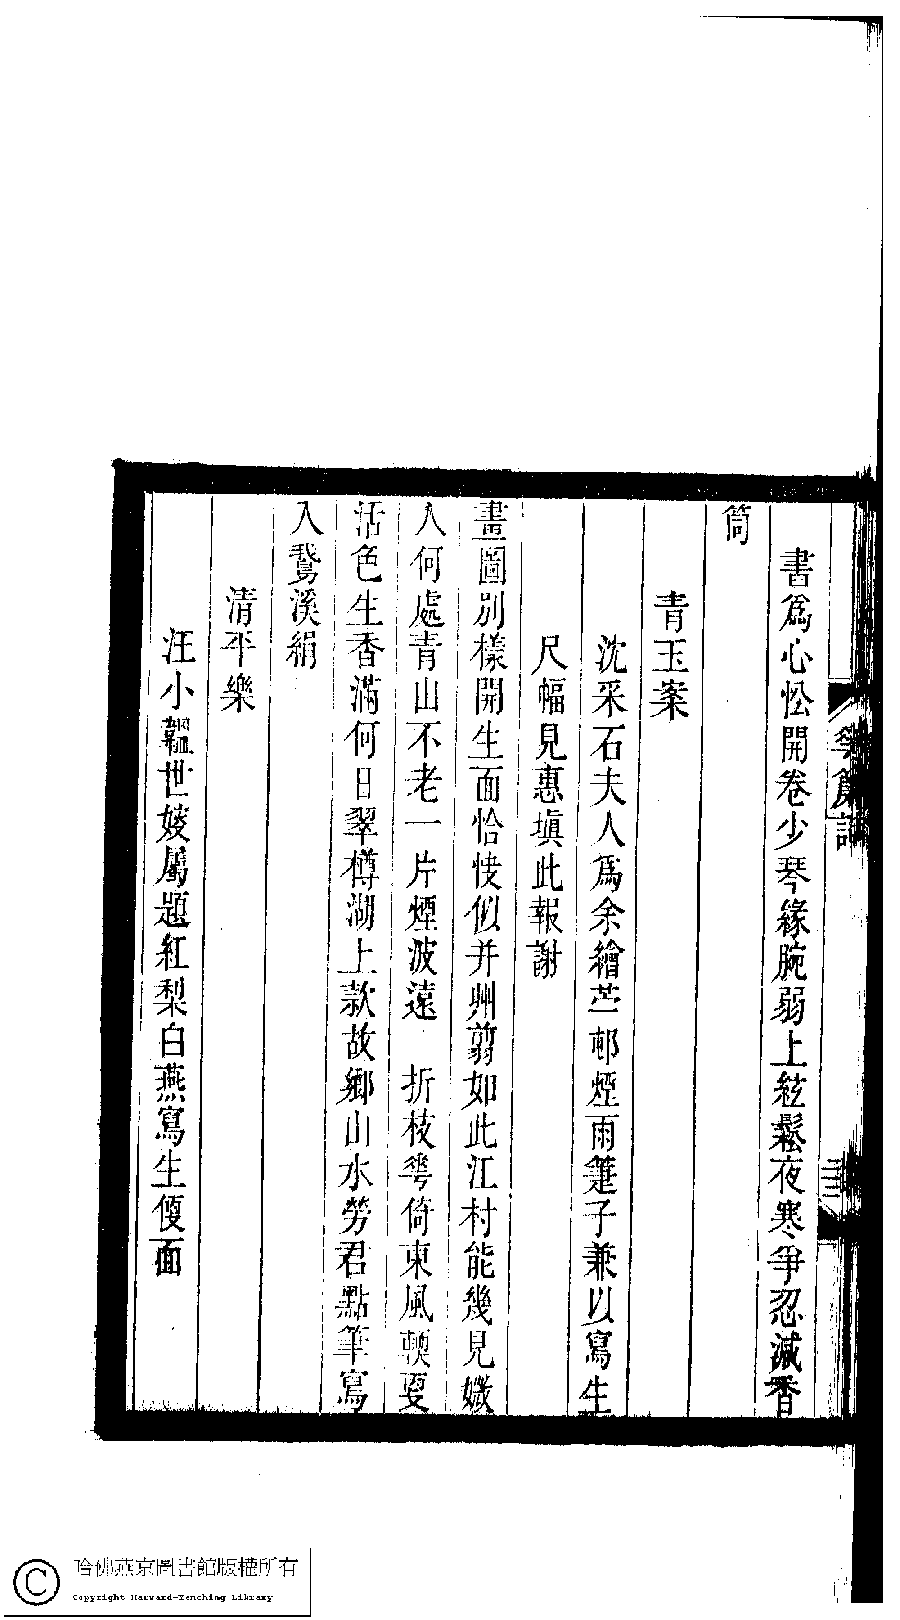 書爲心忪開卷少琴緣腕弱上絃鬆夜寒爭忍減香
筒
青玉案
沈采石夫人爲余繪芒邨煙雨箑子兼以寫生
尺幅見惠塡此報謝
畫圖別樣開生面恰㤦似并州翦如此江村能幾見孅
人何處青山不老一片煙波遠　折枝花倚東風輭更
活色生香滿何日翠樽湖上款故鄉山水勞君點筆寫
入鵞溪絹
清平樂
汪小韞世嫂屬題紅梨白燕寫生便面
哈佛燕京圖書館版權所有
Copyright Harvard-Yenching Library